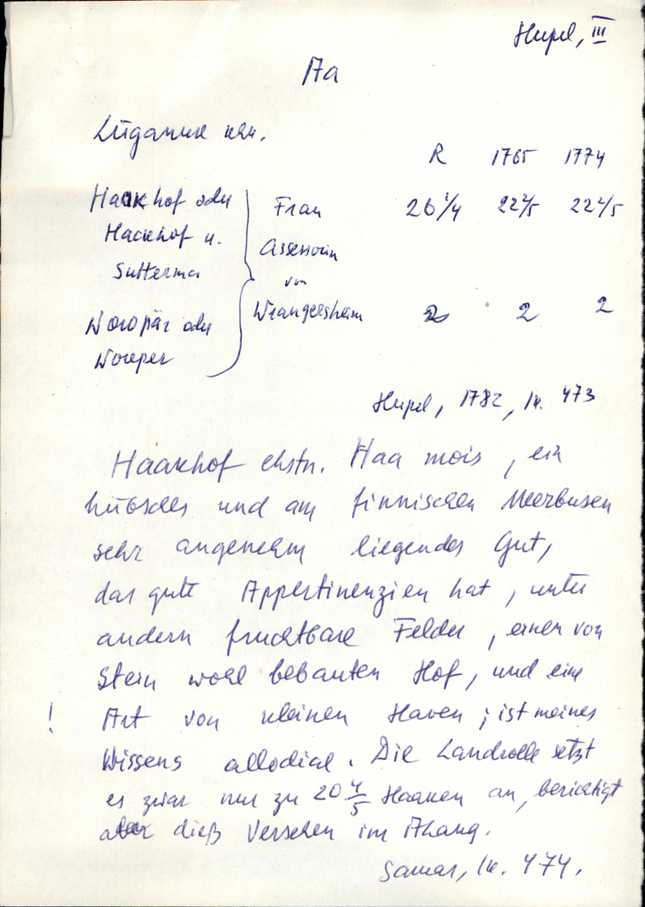 Hupel, III
Aa
Lüganuse khk.
R 1765 1774
Haakhof oder Frau 26 1/4 22 2/5 22 4/5
Hackhof u. Assessorin
Sutterma von
Woropär oder Wrangelsheim 2 2 2
Woreper
Hupel, 1782, lk. 473
Haakhof ehstn. Haa mois, ein
hübsches und am finnischen Meerbusen
sehr angenehm liegendes Gut,
das gute Appertinenzien hat, unter
andern fruchtbare Felder, einen von
Stein wohl bebauten Hof, und eine
! Art von kleinen Haven; ist meines
Wissens allodial. Die Landrolle setzt
es zwar nur zu 20 4/5 Haaken an, berichtigt
aber dieß Versehen im Ahang.
Samas, lk. 474.